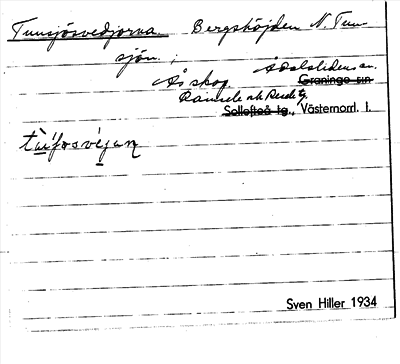 Tunsjösvedjorna. Bergshöjden N. Tun-
sjön.;
Ås skog. Ådalslidens sn.
Graninge sn
Ramsele och Resele tg.
Sollefteå tg., Västernorrl. l.
Sven Hiller 1934